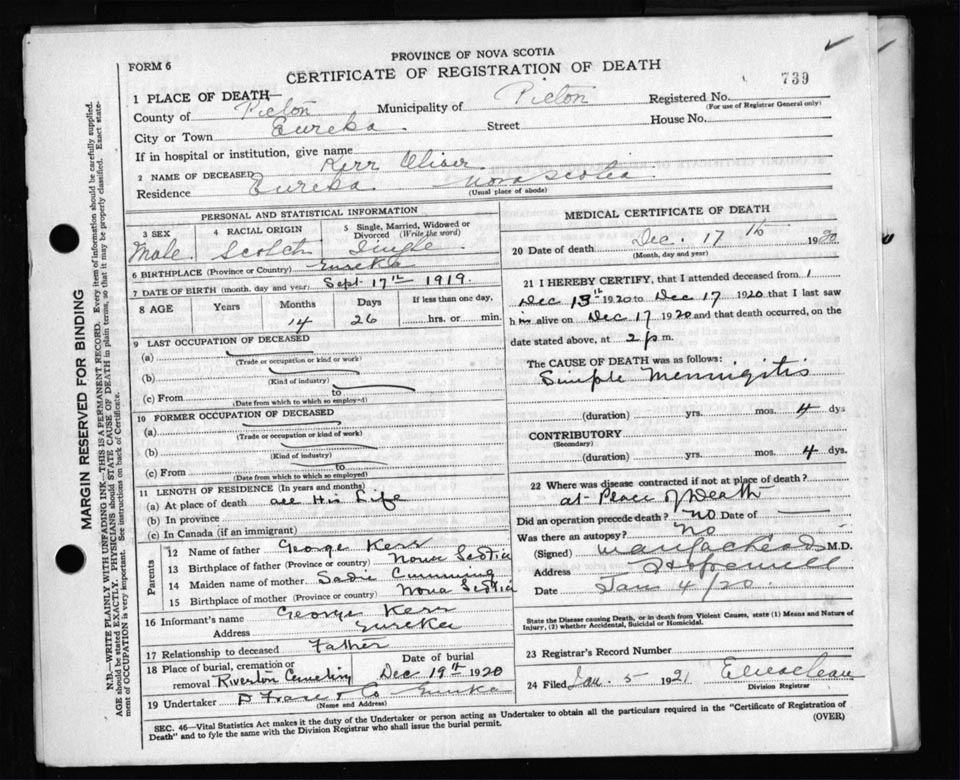 PROVINCE OF NOVA SCOTIA
FORM 6
CERTIFICATE OF REGISTRATION OF DEATH
739
1 PLACE OF DEATH—
County of Pictou Municipality of Pictou Registered No.
(For use of Registrar General only)
City or Town Eureka Street House No.
If in hospital or institution, give name
2 NAME OF DECEASED Kerr Oliver
Residence Eureka Nova Scotia
(Usual place of abode)
PERSONAL AND STATISTICAL INFORMATION
3 SEX Male
4 RACIAL ORIGIN Scotch
5 Single, Married, Widowed or Divorced (Write the word) Single
6 BIRTHPLACE (Province or Country) Eureka
7 DATE OF BIRTH (month, day and year) Sept 17th 1919.
8 AGE Years Months Days If less than one day,
14 26 hrs. or min.
9 LAST OCCUPATION OF DECEASED
(a)
(Trade or occupation or kind of work)
(b)
(Kind of industry)
(c) From to
(Date from which to which so employed)
10 FORMER OCCUPATION OF DECEASED
(a)
(Trade or occupation or kind of work)
(b)
(Kind of industry)
(c) From to
(Date from which to which so employed)
11 LENGTH OF RESIDENCE (In years and months)
(a) At place of death all His Life
(b) In province
(c) In Canada (if an immigrant)
Parents
12 Name of father George Kerr
13 Birthplace of father (Province or country) Nova Scotia
14 Maiden name of mother Sadie Cumming
15 Birthplace of mother (Province or country) Nova Scotia
16 Informant's name George Kerr
Address Eureka
17 Relationship to deceased Father
18 Place of burial, cremation or removal Riverton Cemetery Date of burial Dec 19th 1920
19 Undertaker D Fraser & Co Eureka
(Name and Address)
MEDICAL CERTIFICATE OF DEATH
20 Date of death Dec. 17th 1920
(Month, day and year)
21 I HEREBY CERTIFY, that I attended deceased from
Dec 13th 1920 to Dec 17 1920 that I last saw
him alive on Dec 17 1920 and that death occurred, on the
date stated above, at 2 p m.
The CAUSE OF DEATH was as follows:
Simple Meningitis
(duration) yrs. mos. 4 dys
CONTRIBUTORY
(Secondary)
(duration) yrs. mos. 4 dys.
22 Where was disease contracted if not at place of death?
at Place of Death
Did an operation precede death? No Date of
Was there an autopsy? No
(Signed) M.D.
Address Hopewell
Date Jan 4/20
State the Disease causing Death, or in death from Violent Causes, state (1) Means and Nature of
Injury, (2) whether Accidental, Suicidal or Homicidal.
23 Registrar's Record Number
24 Filed Jan. 5 1921
Division Registrar
SEC. 46—Vital Statistics Act makes it the duty of the Undertaker or person acting as Undertaker to obtain all the particulars required in the "Certificate of Registration of
Death" and to fyle the same with the Division Registrar who shall issue the burial permit.
(OVER)
MARGIN RESERVED FOR BINDING
N.B.—WRITE PLAINLY WITH UNFADING INK—THIS IS A PERMANENT RECORD. Every item of information should be carefully supplied.
AGE should be stated EXACTLY. PHYSICIANS should STATE CAUSE OF DEATH in plain terms, so that it may be properly classified. Exact statement
of OCCUPATION is very important. See instructions on back of Certificate.